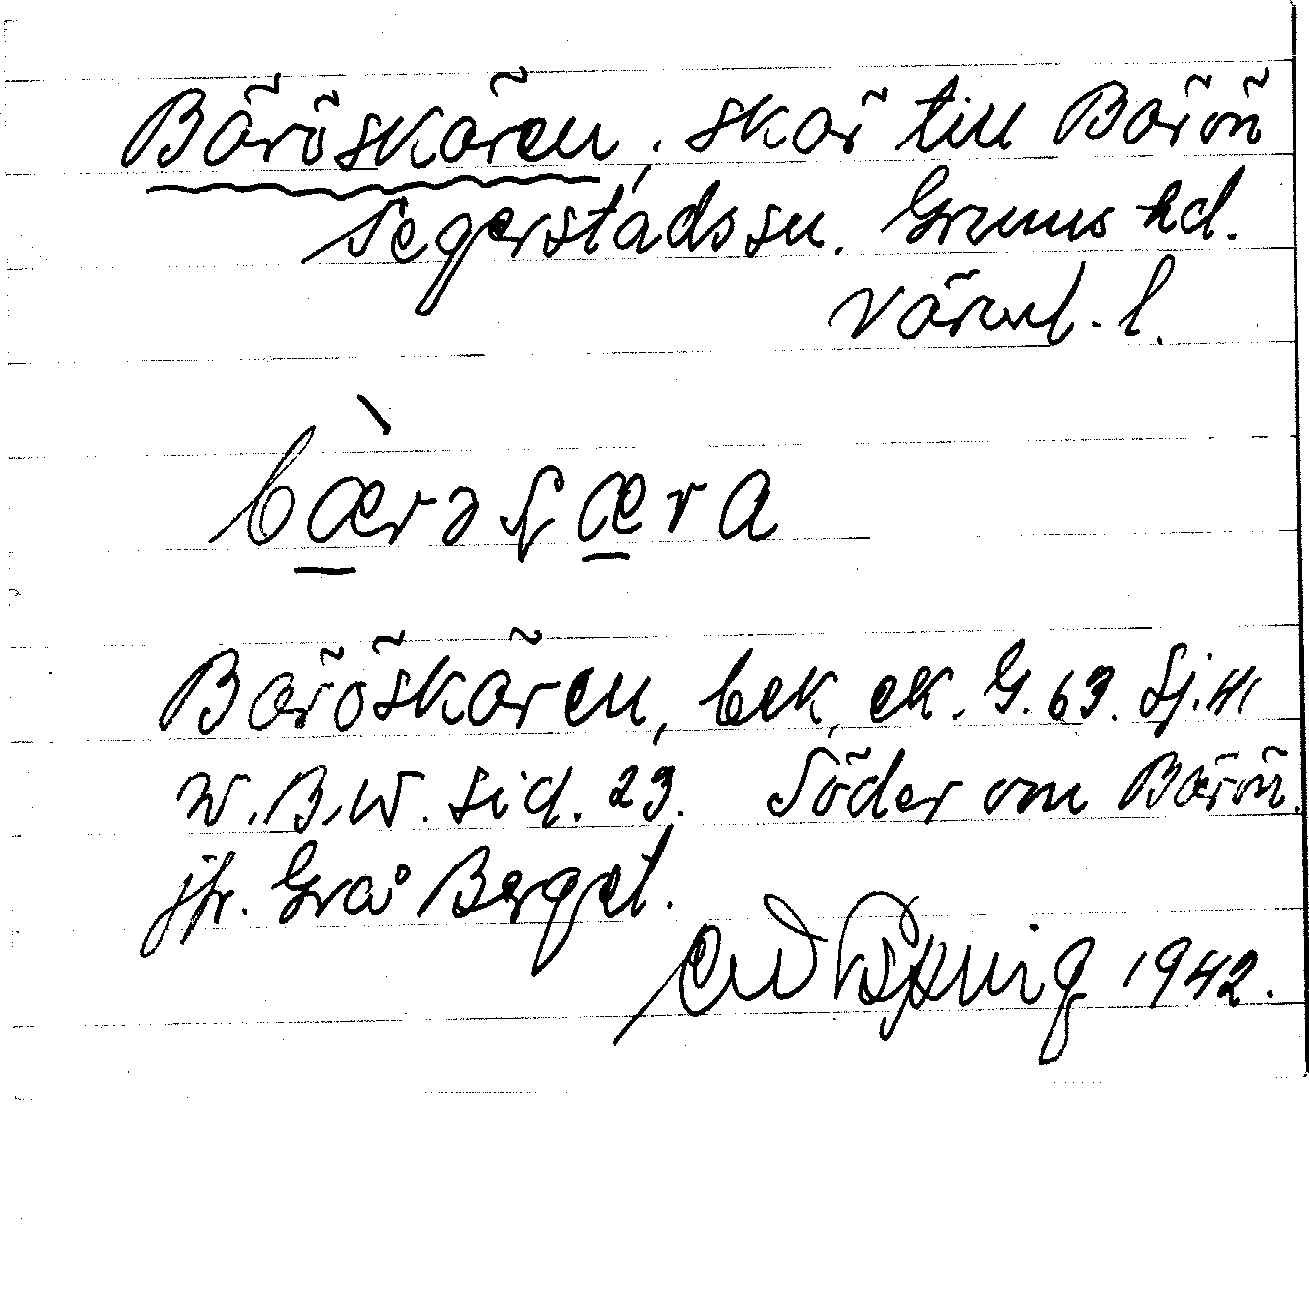 Bäröskären, skär till Bärön
Segerstads sn. Grums hd.
Värml. l.
bærəʂæra
Bäröskären, bek. ek. G. 63. Sj. H
W.B.W. sid. 23. Söder om Bärön.
jfr. Grå Berget.
1942.